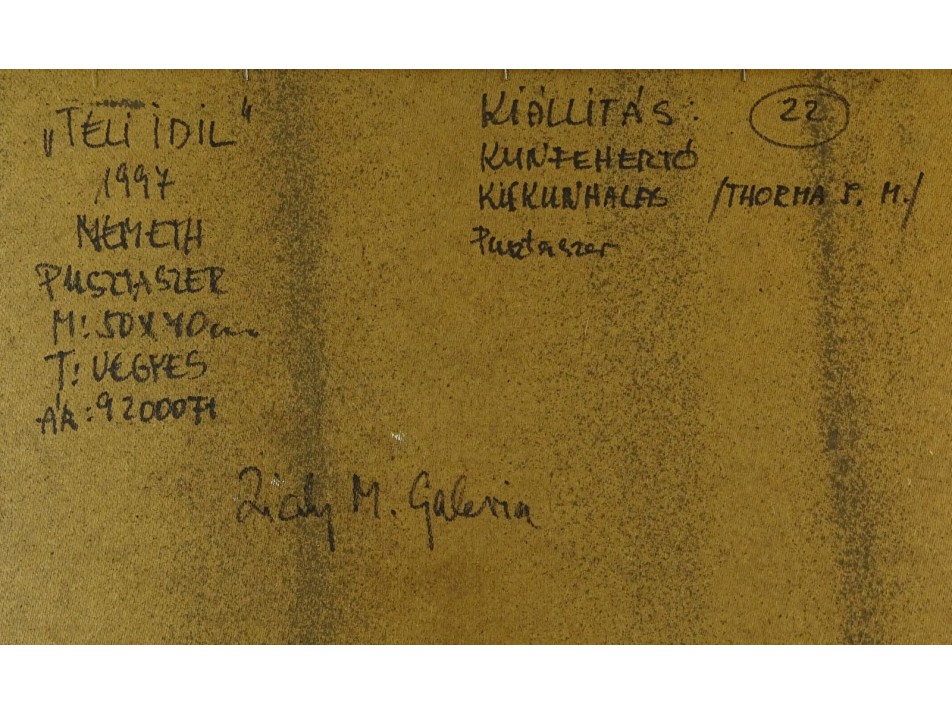 „TÉLI IDIL"
1997
NÉMETH
PUSZTASZER
M: 50X40cm
T: VEGYES
ÁR: 92000Ft
KIÁLLITÁS: 22
KUNFEHÉRTÓ
KISKUNHALAS /THORMA J. M./
Pusztaszer
Zichy M. Galeria